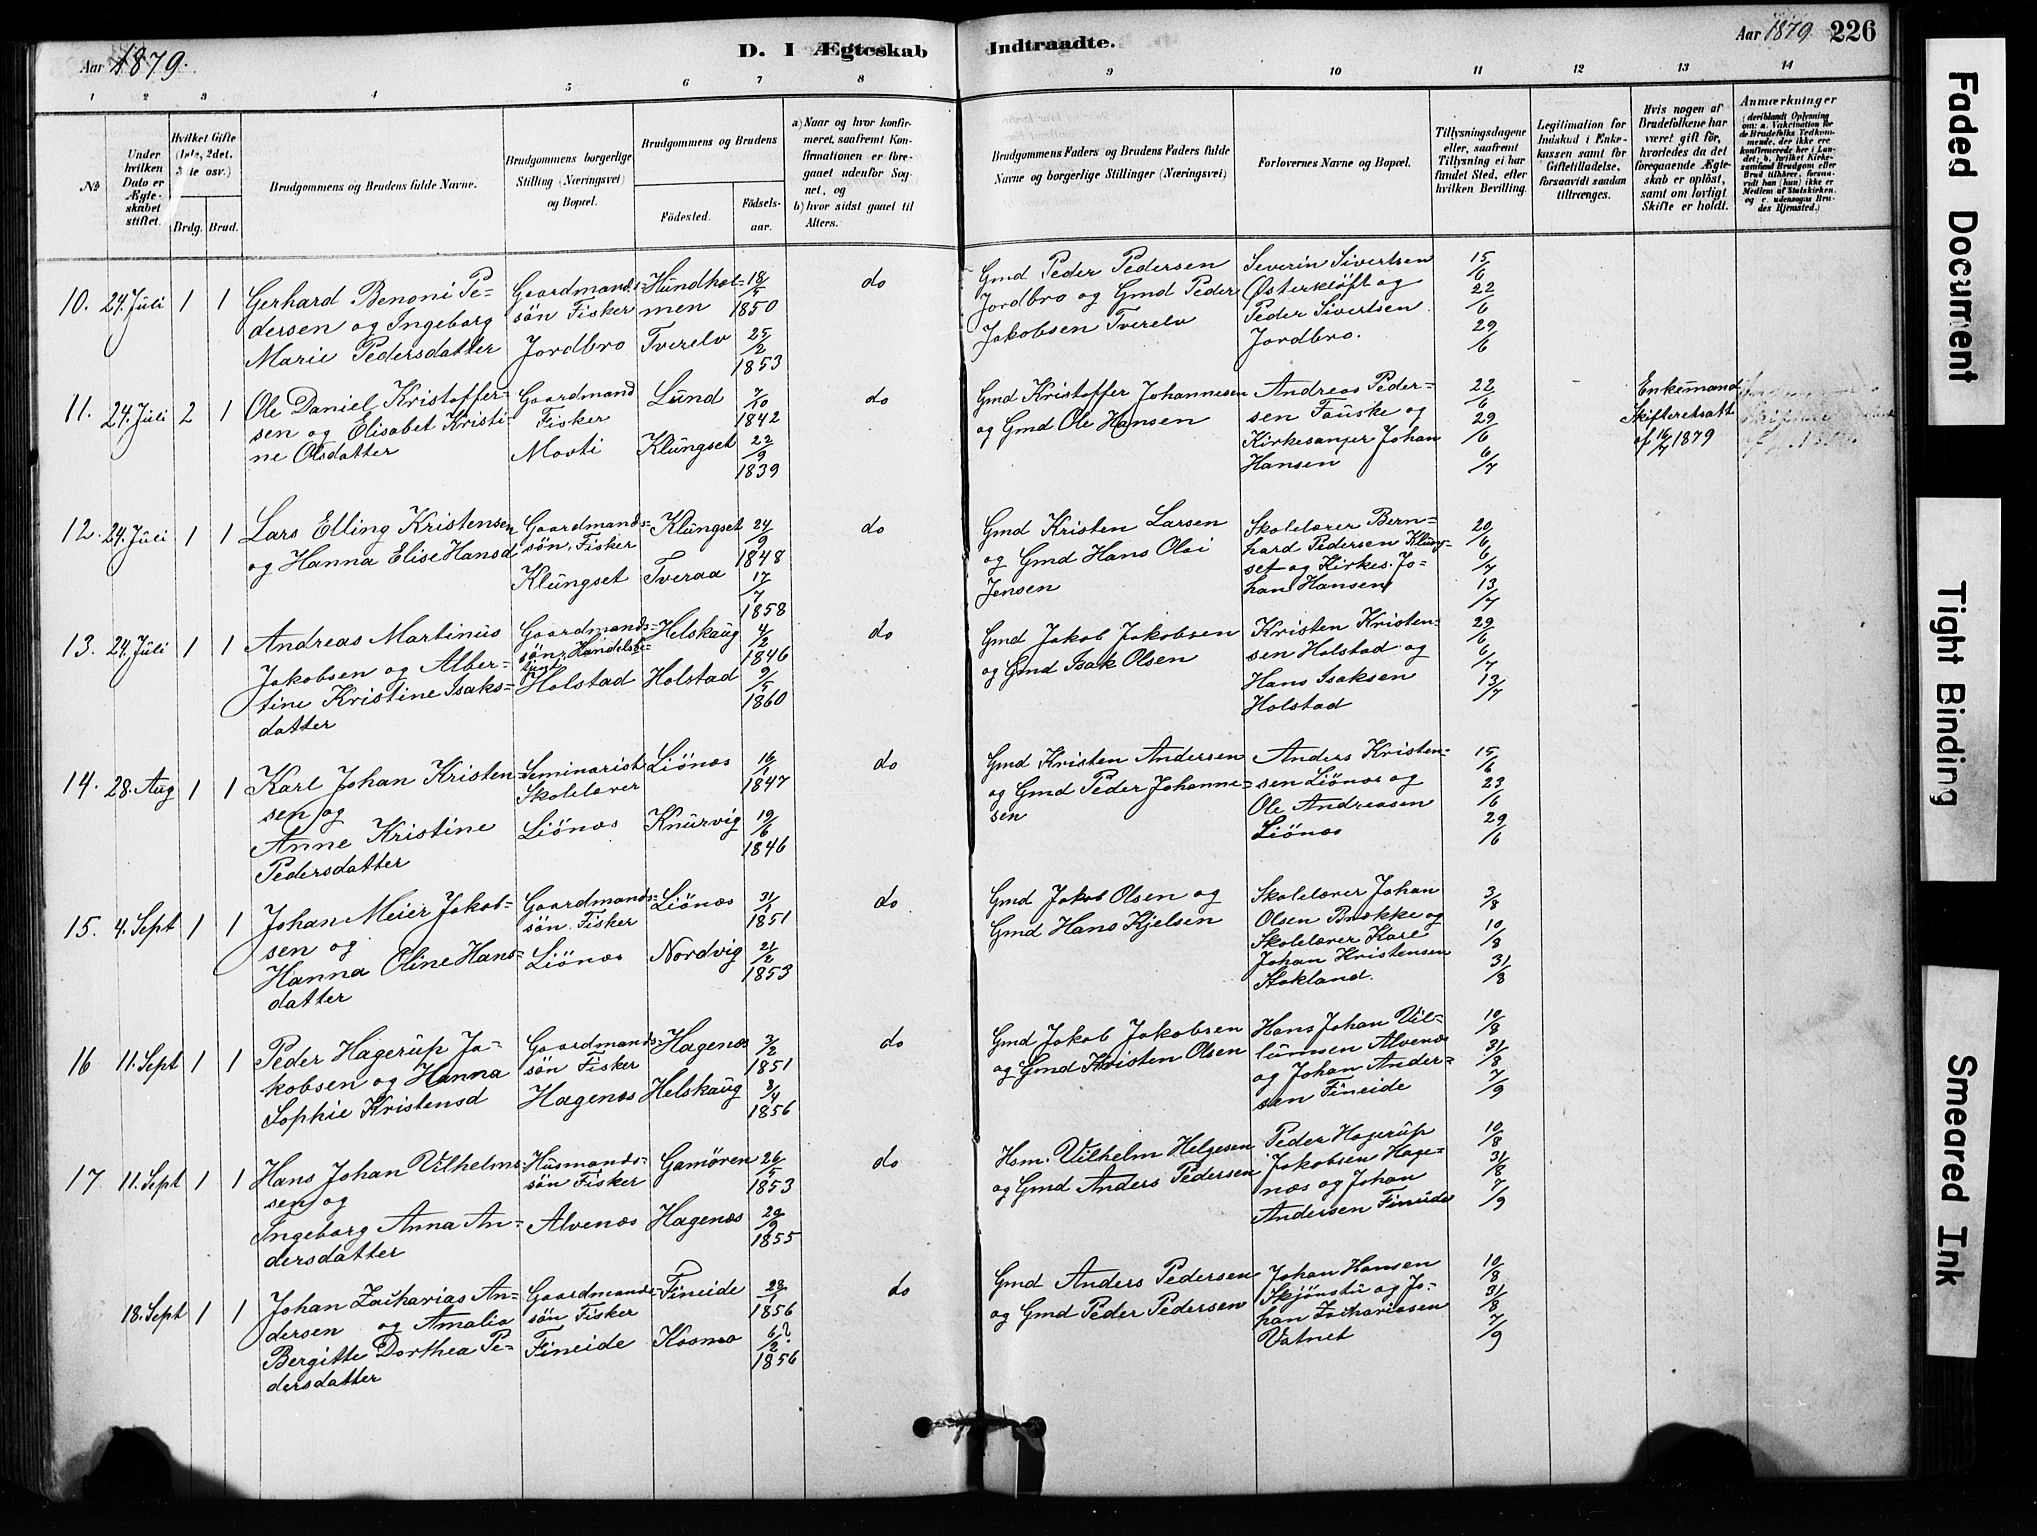 Aar 1879.
D. I Ægteskab Indtraadte.
Aar 1879 226
1 2 3 4 5 6 7 8 9 10 11 12 13 14
No
Under hvilken Dato er Ægteskabet stiftet.
Hvilket Gifte (1ste, 2det, 3die osv.)
Brdg. Brud.
Brudgommens og Brudens fulde Navne.
Brudgommens borgerlige Stilling (Næringsvei) og Bopæl.
Brudgommens og Brudens
Fødested. Fødselsaar.
a) Naar og hvor konfirmeret, saafremt Konfirmationen er foregaaet udenfor Sognet, og
b) hvor sidst gaaet til Alters.
Brudgommens Faders og Brudens Faders fulde Navne og borgerlige Stillinger (Næringsvei)
Forlovernes Navne og Bopæl.
Tillysningsdagene eller, saafremt Tillysning ei har fundet Sted, efter hvilken Bevilling.
Legitimation for Indskud i Enkekassen samt for Giftetilladelse, forsaavidt saadan tiltrænges.
Hvis nogen af Brudefolkene har været gift før, hvorledes da det foregaaende Ægteskab er opløst, samt om lovligt Skifte er holdt.
Anmærkninger
(deriblandt Oplysning om: a. Vakcination for de Brudefolks Vedkommende, der ikke ere konfirmerede her i Landet; b. hvilket Kirkesamfund Brudgom eller Brud tilhører, forsaavidt han (hun) ikke er Medlem af Statskirken, og c. udensogns Brudes Hjemsted.)
10. 24. Juli 1 1
Gerhard Benoni Pe-
dersen og Ingeborg
Marie Pedersdatter
Gaardmands-
søn Fisker
Jordbro
Hundhol-
men
Tverelv
18/5
1850
25/2
1853
do
Gmd Peder Pedersen
Jordbro og Gmd Peder
Jakobsen Tverelv
Severin Sivertsen
Østerkløft og
Peder Sivertsen
Jordbro.
15/6
22/6
29/6
11. 24. Juli 2 1
Ole Daniel Kristoffer-
sen og Elisabet Kristi-
ne Olsdatter
Gaardmand
Fisker
Movti
Lund
Klungset
7/10
1842
22/9
1839
do
Gmd Kristoffer Johannesen
og Gmd Ole Hansen
Andreas Peder-
sen Fauske og
Kirkesanger Johan
Hansen
22/6
29/6
6/7
Enkemand
Skifteretsatt
af 16/7 1879
12. 24. Juli 1 1
Lars Elling Kristensen
og Hanna Elise Hansd
Gaardmands-
søn. Fisker
Klungset
Klungset
Tveraa
24/9
1848
17/7
1858
do
Gmd Kristen Larsen
og Gmd Hans Olai
Jensen
Skolelærer Bern-
hard Pedersen Klung-
set og Kirkes. Jo-
han Hansen
20/6
6/7
13/7
13. 24. Juli 1 1
Andreas Martinus
Jakobsen og Alber-
tine Kristine Isaks-
datter
Gaardmands-
søn, Handelsbe-
tjent
Holstad
Helskaug
Holstad
4/2
1846
9/5
1860
do
Gmd Jakob Jakobsen
og Gmd Isak Olsen
Kristen Kristen-
sen Holstad og
Hans Isaksen
Holstad
29/6
6/7
13/7
14. 28. Aug 1 1
Karl Johan Kristen-
sen og
Anne Kristine
Pedersdatter
Seminarist
Skolelærer
Liönæs
Liönæs
Knurvig
16/1
1847
19/6
1846
do
Gmd Kristen Andersen
og Gmd Peder Johanne-
sen
Anders Kristen-
sen Liönæs og
Ole Andreasen
Liönæs
15/6
23/6
29/6
15. 4. Sept 1 1
Johan Meier Jakob-
sen og
Hanna Oline Hans-
datter
Gaardmands-
søn. Fisker
Liönæs
Liönæs
Nordvig
1851
21/2
1853
do
Gmd Jakob Olsen og
Gmd Hans Kjelsen
Skolelærer Johan
Olsen Brække og
Skolelærer Karl
Johan Kristensen
Stokland.
3/8
10/8
31/8
16 11. Sept 1 1
Peder Hagerup Ja-
kobsen og Hanna
Sophie Kristensd
Gaardmands-
søn Fisker
Hagenæs
Hagenæs
Helskaug
3/2
1851
3/4
1856
do
Gmd Jakob Jakobsen
og Gmd Kristen Olsen
Hans Johan Vil-
lumsen Alvenæs
og Johan Ander-
sen Fineide
10/8
31/8
7/9
17 11. Sept 1 1
Hans Johan Vilhelm-
sen og
Ingeborg Anna An-
dersdatter
Husmands-
søn Fisker
Alvenæs
Gamøren
Hagenæs
26/5
1853
29/9
1855
do
Hsm. Vilhelm Helgesen
og Gmd Anders Pedersen
Peder Hagerup
Jakobsen Hage-
næs og Johan
Andersen Fineide
10/8
31/8
7/9
18. Sept 1 1
Johan Zacharias An-
dersen og Amalia
Bergitte Dorthea Pe-
dersdatter
Gaardmands-
søn Fisker
Fineide
Fineide
Kosmo
28/1
1856
6?/2
1856
do
Gmd Anders Pedersen
og Gmd Peder Pedersen
Johan Hansen
Skjönstu og Jo-
han Zachariasen
Vatnet
10/8
31/8
7/9
Faded Document
Tight Binding
Smeared Ink